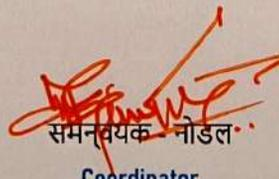 समन्वयक - नोडल
Coordinator